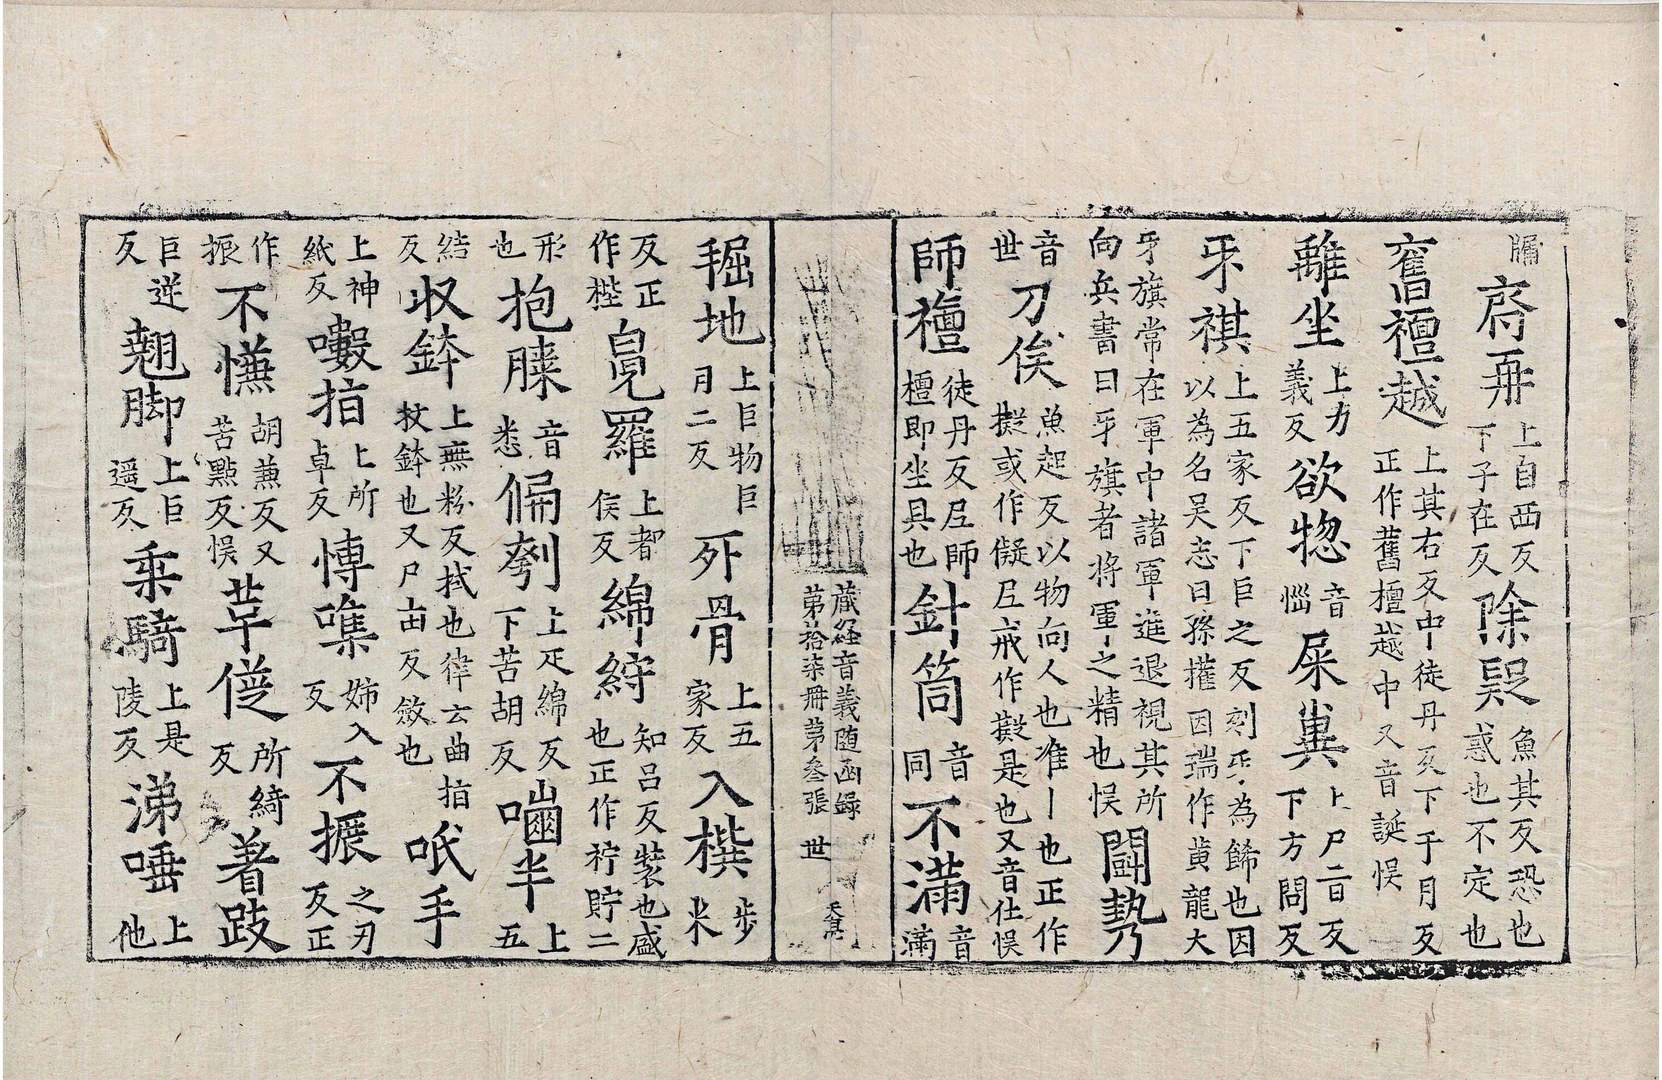 牖齋再上自西反下子在反除疑魚其反恐也惑也不定也
舊襢越上其右反中徒丹反下于月反正作舊檀越中又音誕悮
離坐上力義反欲惣音惱屎糞上尸二反下方問反
牙祺上五家反下巨之反刻牙為餙也因以為名吴志曰孫攉因瑞作黄龍大
牙旗常在軍中諸軍進退視其所向兵書曰牙旗者將軍之精也悮鬪㔟
音世刀俟魚起反以物向人也准丨也正作擬或作儗㞐戒作擬是也又音仕悮
師襢徒丹反㞐師檀即坐具也針筒音同不滿音滿
藏経音義随函録第拾柒冊第叁張世
掘地上巨物巨月二反死骨上五家反入㯥步米
反正作梐㿟羅上都侯反綿紵知吕反裝也盛也正作䇡貯二
形也抱膝音悉偏刳上疋綿反下苦胡反嚙半上五
結反収鉢上無粉反拭也律云曲指杖鉢也又尸由反斂也吮手
上神紙反㪢指上所卓反愽噍姉入反不振之刃反正
作振不慊胡兼反又苦點反悮草屣所綺反著跂
巨逆反翹脚上巨遥反乘騎上是陵反涕唾上他